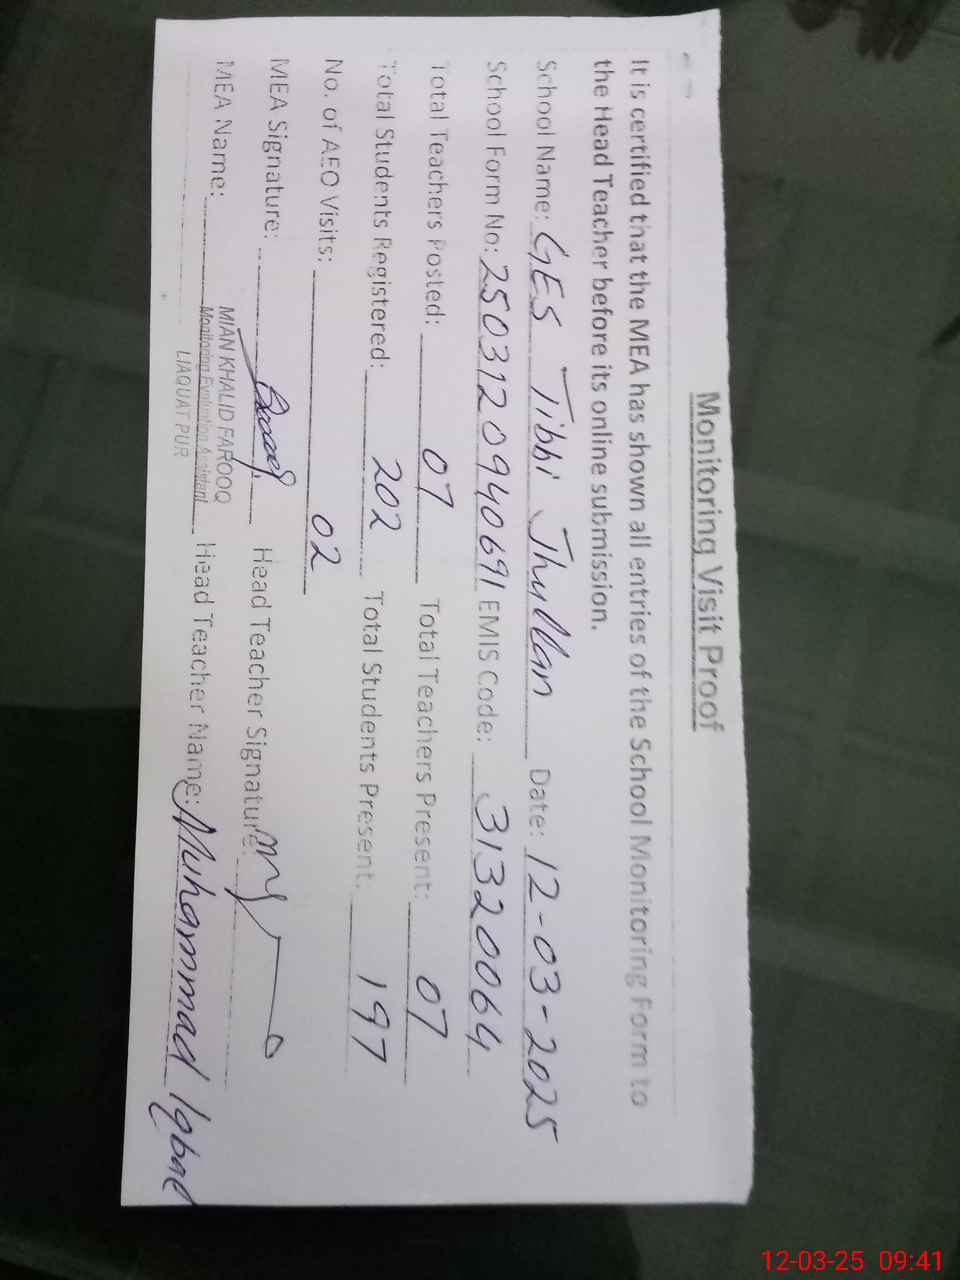 Monitoring Visit Proof
It is certified that the MEA has shown all entries of the School Monitoring Form to
the Head Teacher before its online submission.
School Name: GES Tibbi Jhullan Date: 12-03-2025
School Form No: 25031209940691 EMIS Code: 31320064
Total Teachers Posted: 07 Total Teachers Present: 07
Total Students Registered: 202 Total Students Present: 197
No. of AEO Visits: 02
MEA Signature: Head Teacher Signature:
MEA Name: MIAN KHALID FAROOQ Head Teacher Name: Muhammad Iqbal
Monitoring Evolution Assistant
LIAQUAT PUR
12-03-25 09:41